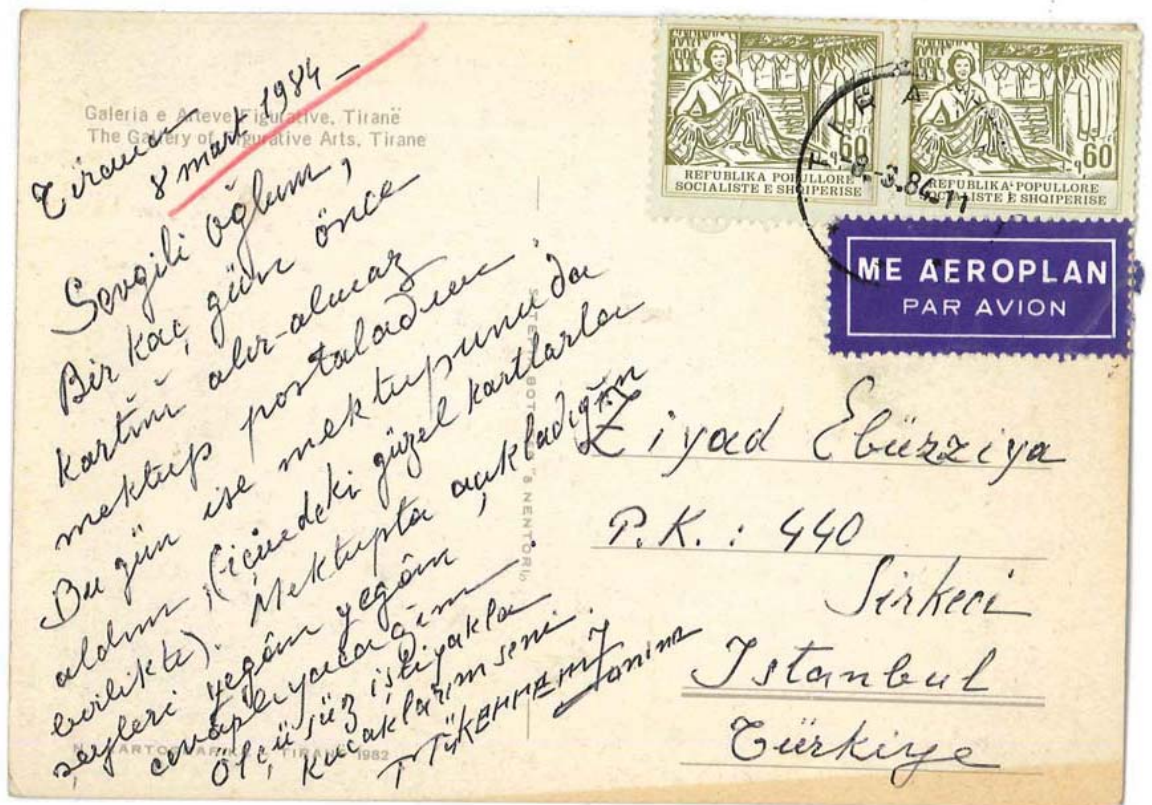 Galeria e Arteve Figurative, Tiranë
The Gallery of Figurative Arts, Tirane
Tirana
8 mart 1984
Sevgili oğlum,
Bir kaç gün önce
kartını alır-almaz
mektup postaladım.
Bu gün ise mektupunu da
aldım, (içindeki güzel kartlarla
birlikte). Mektupta açıkladığın
şeyleri yegân yegân
cevaplıyacağım.
Ölçüsüz iştiyakla
kucaklarım seni
REPUBLIKA POPULLORE
SOCIALISTE E SHQIPERISE
q60
REPUBLIKA POPULLORE
SOCIALISTE E SHQIPERISE
q60
TIRANA
-8.-3.84-11
ME AEROPLAN
PAR AVION
Ziyad Ebüzziya
P.K.: 440
Sirkeci
Istanbul
Türkiye
"8 NENTORI"
TIRANE 1982